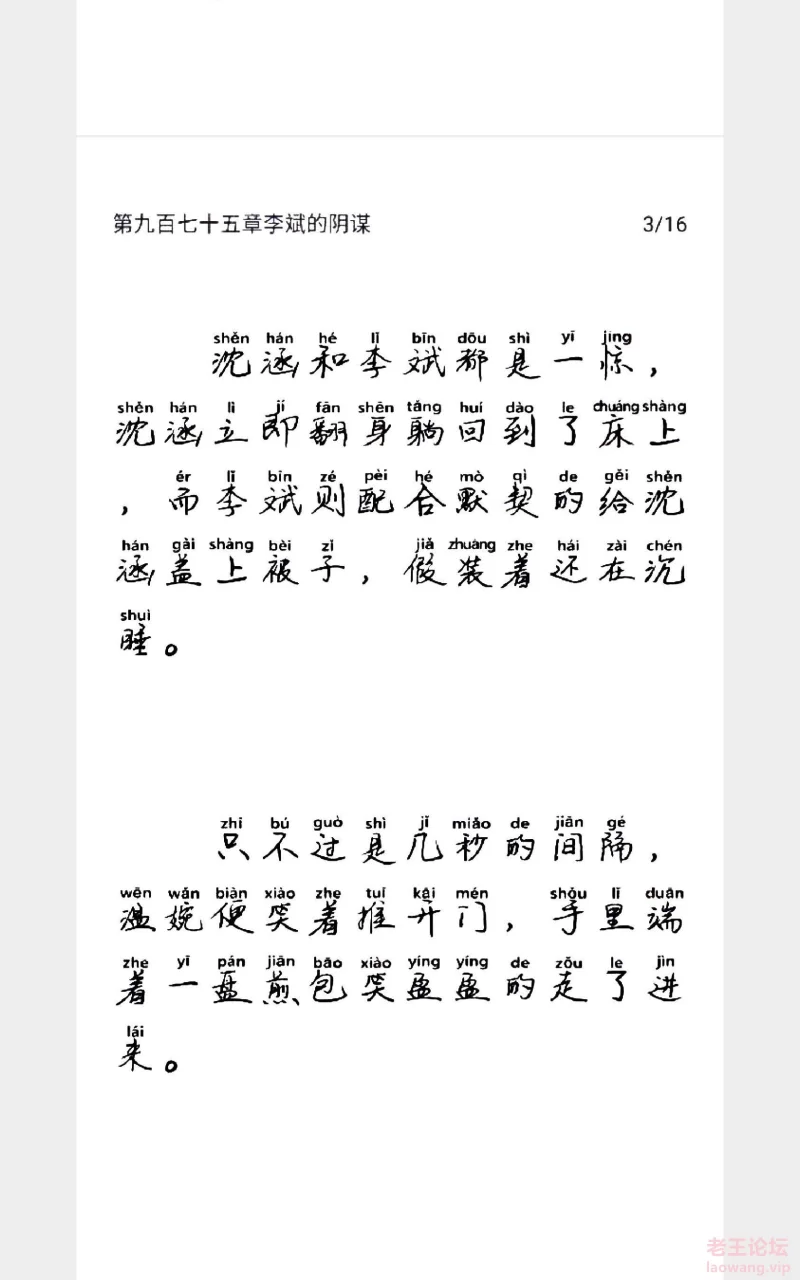 第九百七十五章李斌的阴谋 3/16
shěn hán hé lǐ bīn dōu shì yī jīng
沈涵和李斌都是一惊，
shěn hán lì jí fān shēn tǎng huí dào le chuáng shàng
沈涵立即翻身躺回到了床上
ér lǐ bīn zé pèi hé mò qì de gěi shěn
，而李斌则配合默契的给沈
hán gài shàng bèi zǐ jiǎ zhuāng zhe hái zài chén
涵盖上被子，假装着还在沉
shuì
睡。
zhǐ bú guò shì jǐ miǎo de jiān gé
只不过是几秒的间隔，
wēn wǎn biàn xiào zhe tuī kāi mén shǒu lǐ duān
温婉便笑着推开门，手里端
zhe yī pán jiān bāo xiào yíng yíng de zǒu le jìn
着一盘煎包笑盈盈的走了进
lái
来。
老王论坛
laowang.vip